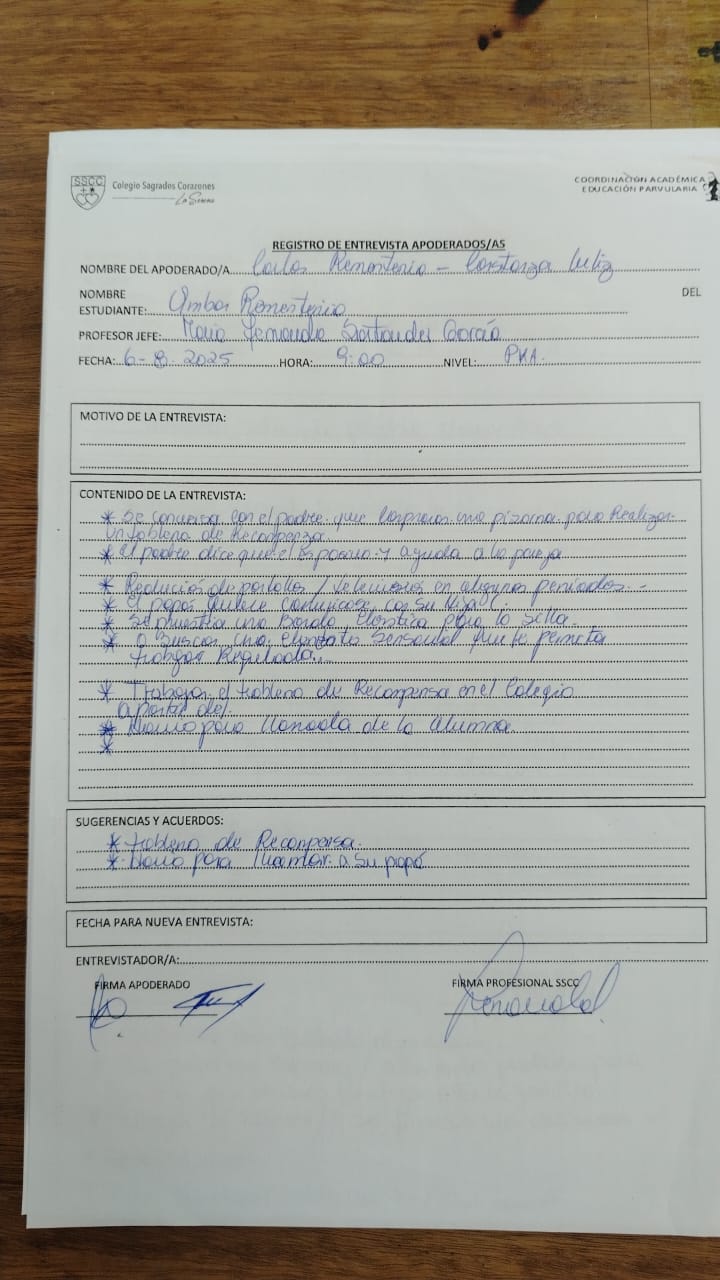 SSCC
Colegio Sagrados Corazones
La Serena
COORDINACIÓN ACADÉMICA
EDUCACIÓN PARVULARIA
REGISTRO DE ENTREVISTA APODERADOS/AS
NOMBRE DEL APODERADO/A Carlos Rementeria - Constanza
NOMBRE DEL
ESTUDIANTE: Ambar Rementeria
PROFESOR JEFE: Maria Fernanda Santander García
FECHA: 6-8-2025 HORA: 9:00 NIVEL: PKA.
MOTIVO DE LA ENTREVISTA:
CONTENIDO DE LA ENTREVISTA:
* Se conversa con el padre que una pizarra para Realizar
un tablero de Recompenza.
* El padre dice que el y ayuda a la pareja
* de pantallas / televisores en algunos periodos. -
* El papá quiere comunicar con su Hija
* Se muestra una Banda Elastica para la silla.
* O Buscar una Sensorial que le permita
trabajar Regulada.
* Trabajar el tablero de Recompensa en el Colegio
a partir del.
* para llamada de la alumna.
*
SUGERENCIAS Y ACUERDOS:
* tablero de Recompensa.
* para llamar a su papá
FECHA PARA NUEVA ENTREVISTA:
ENTREVISTADOR/A:
FIRMA APODERADO
FIRMA PROFESIONAL SSCC